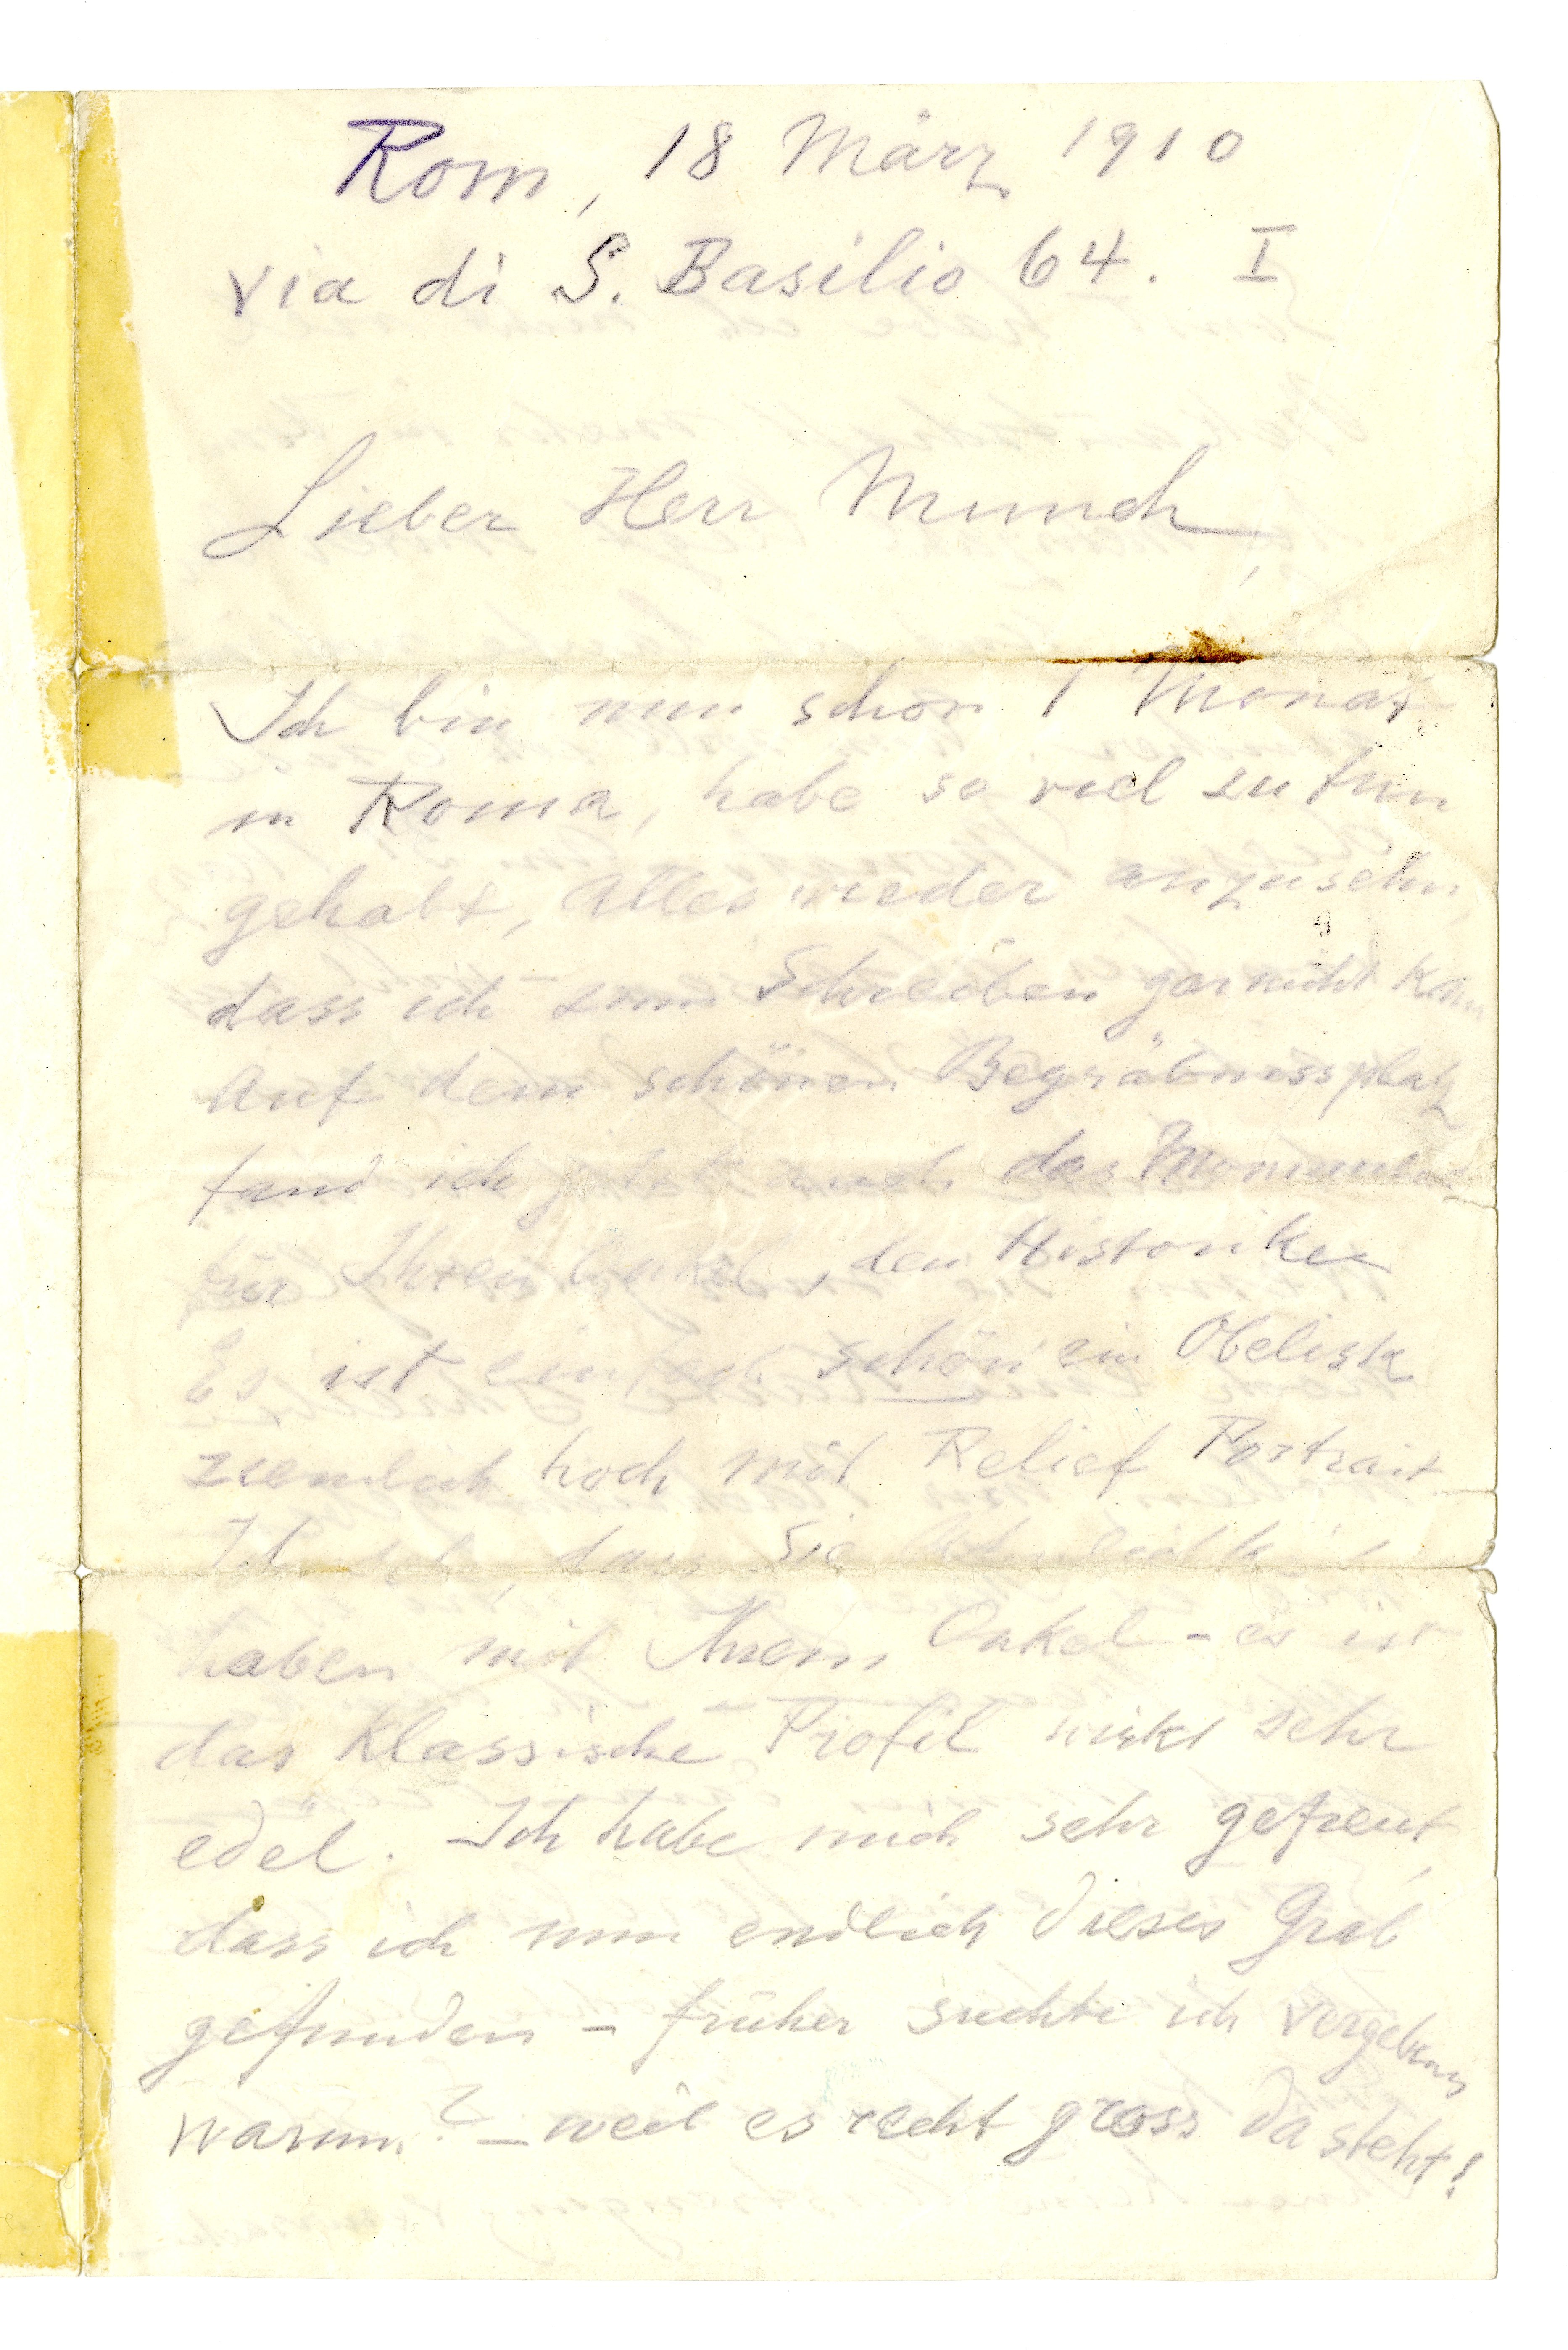 Rom, 18 März 1910
via di S. Basilio 64. I
Lieber Herr Munch,
Ich bin nun schon 1 Monat
in Roma, habe so viel zu tun
gehabt, Alles wieder anzusehn,
dass ich zum Schreiben gar nicht kam
Auf dem schönen Begräbnissplatz
fand ich auch das Monument
für Ihren Onkel, den Historiker
Es ist einfach schön ein Obelisk
ziemlich hoch mit Relief Portrait
Ich seh, dass Sie Ähnlichk
haben mit Ihrem Onkel – es ist
das Klassische Profil wirkt sehr
edel. Ich habe mich sehr gefreut,
dass ich nun endlich dieses Grab
gefunden – früher suchte ich vergebens
warum? – weil es recht gross da steht!